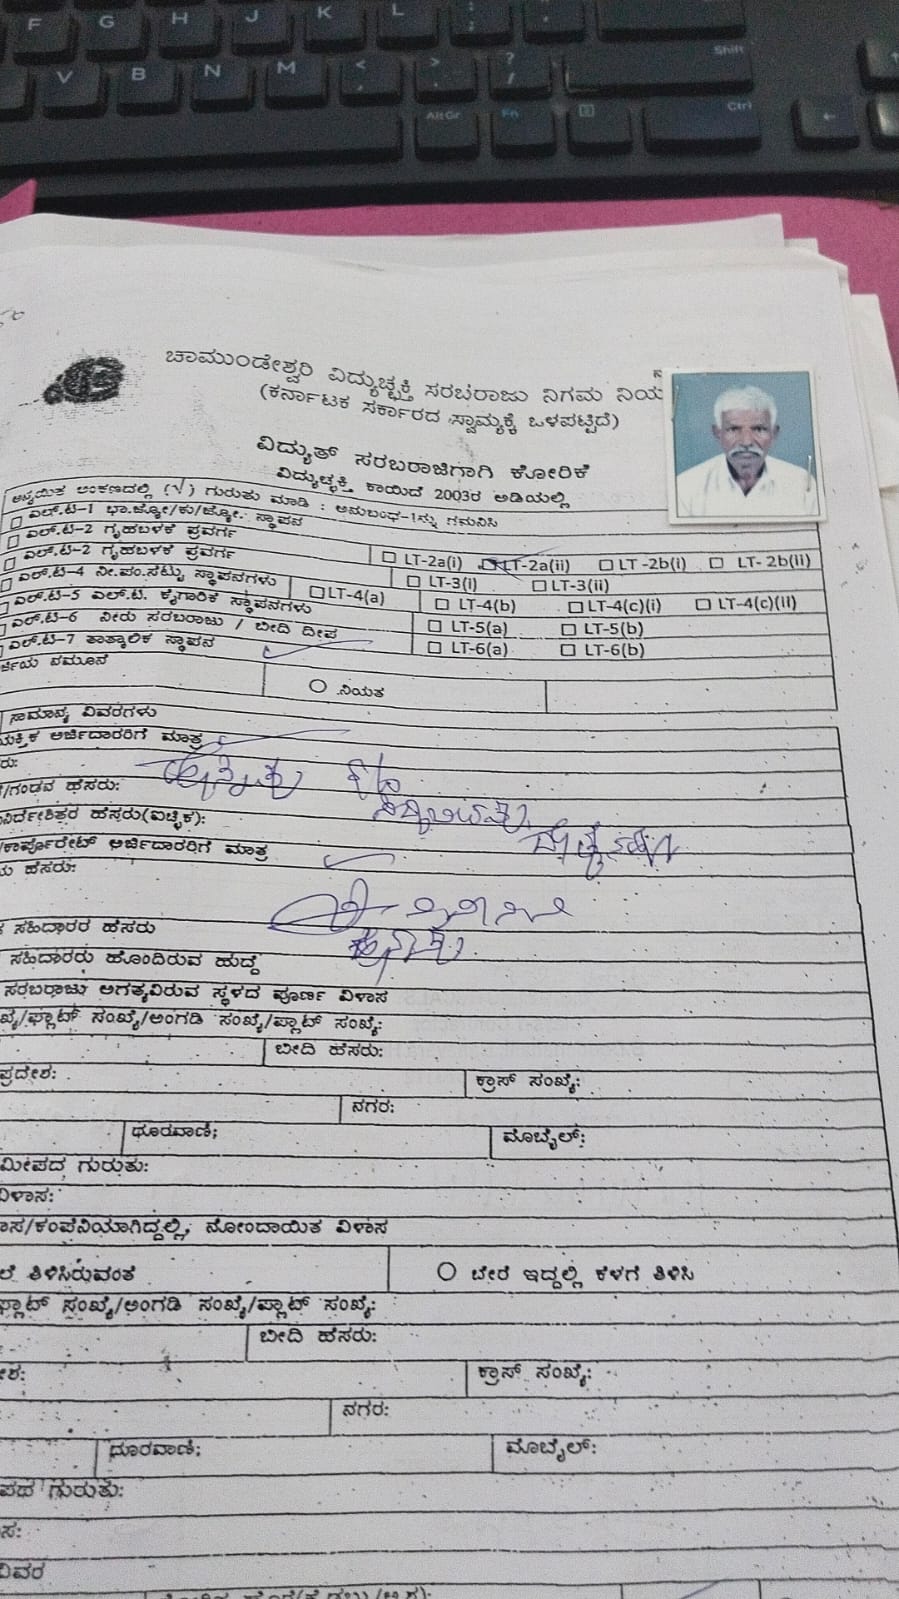 F G H J K L : ;
V B N M < , > . ? / Shift
AltGr Fn Ctrl
ಚಾಮುಂಡೇಶ್ವರಿ ವಿದ್ಯುಚ್ಛಕ್ತಿ ಸರಬರಾಜು ನಿಗಮ ನಿಯ
(ಕರ್ನಾಟಕ ಸರ್ಕಾರದ ಸ್ವಾಮ್ಯಕ್ಕೆ ಒಳಪಟ್ಟಿದೆ)
ವಿದ್ಯುತ್ ಸರಬರಾಜಿಗಾಗಿ ಕೋರಿಕೆ
ವಿದ್ಯುಚ್ಛಕ್ತಿ ಕಾಯಿದೆ 2003ರ ಅಡಿಯಲ್ಲಿ
ಅನ್ವಯಿತ ಅಂಕಣದಲ್ಲಿ (√) ಗುರುತು ಮಾಡಿ : ಅನುಬಂಧ-1ನ್ನು ಗಮನಿಸಿ
ಎಲ್.ಟಿ-1 ಭಾ.ಜ್ಯೋ/ಕು/ಜ್ಯೋ. ಸ್ಥಾಪನ
ಎಲ್.ಟಿ-2 ಗೃಹಬಳಕೆ ಪ್ರವರ್ಗ
ಎಲ್.ಟಿ-2 ಗೃಹಬಳಕೆ ಪ್ರವರ್ಗ LT-2a(i) LT-2a(ii) LT-2b(i) LT-2b(ii)
LT-3(i) LT-3(ii)
ಎಲ್.ಟಿ-4 ನೀ.ಪಂ.ಸೆಟ್ಟು ಸ್ಥಾಪನಗಳು LT-4(a) LT-4(b) LT-4(c)(i) LT-4(c)(II)
ಎಲ್.ಟಿ-5 ಎಲ್.ಟಿ. ಕೈಗಾರಿಕೆ ಸ್ಥಾಪನಗಳು LT-5(a) LT-5(b)
ಎಲ್.ಟಿ-6 ನೀರು ಸರಬರಾಜು / ಬೀದಿ ದೀಪ LT-6(a) LT-6(b)
ಎಲ್.ಟಿ-7 ತಾತ್ಕಾಲಿಕ ಸ್ಥಾಪನ
ರ್ಜಿಯ ನಮೂನೆ
ನಿಯತ
ಸಾಮಾನ್ಯ ವಿವರಗಳು
ಯಕ್ತಿಕ ಅರ್ಜಿದಾರರಿಗೆ ಮಾತ್ರ
ರು:
/ಗಂಡನ ಹೆಸರು:
ನಿರ್ದೇಶಿತರ ಹೆಸರು(ಐಚ್ಛಿಕ):
/ಕಾರ್ಪೊರೇಟ್ ಅರ್ಜಿದಾರರಿಗೆ ಮಾತ್ರ
ಯ ಹೆಸರು:
ಸಹಿದಾರರ ಹೆಸರು
ಸಹಿದಾರರು ಹೊಂದಿರುವ ಹುದ್ದೆ
ಸರಬರಾಜು ಅಗತ್ಯವಿರುವ ಸ್ಥಳದ ಪೂರ್ಣ ವಿಳಾಸ
ಖ್ಯೆ/ಫ್ಲಾಟ್ ಸಂಖ್ಯೆ/ಅಂಗಡಿ ಸಂಖ್ಯೆ/ಪ್ಲಾಟ್ ಸಂಖ್ಯೆ:
ಬೀದಿ ಹೆಸರು:
ಪ್ರದೇಶ: ಕ್ರಾಸ್ ಸಂಖ್ಯೆ:
ನಗರ:
ಧೂರವಾಣಿ; ಮೊಬೈಲ್:
ಮೀಪದ ಗುರುತು:
ವಿಳಾಸ:
ಾಸ/ಕಂಪೆನಿಯಾಗಿದ್ದಲ್ಲಿ, ನೋಂದಾಯಿತ ವಿಳಾಸ
ಲೆ ತಿಳಿಸಿರುವಂತೆ ಬೇರೆ ಇದ್ದಲ್ಲಿ ಕೆಳಗೆ ತಿಳಿಸಿ
ಫ್ಲಾಟ್ ಸಂಖ್ಯೆ/ಅಂಗಡಿ ಸಂಖ್ಯೆ/ಪ್ಲಾಟ್ ಸಂಖ್ಯೆ:
ಬೀದಿ ಹೆಸರು:
ೇಶ: ಕ್ರಾಸ್ ಸಂಖ್ಯೆ:
ನಗರ:
ಧೂರವಾಣಿ; ಮೊಬೈಲ್:
ಪದ ಗುರುತು:
ಸ:
ವಿವರ